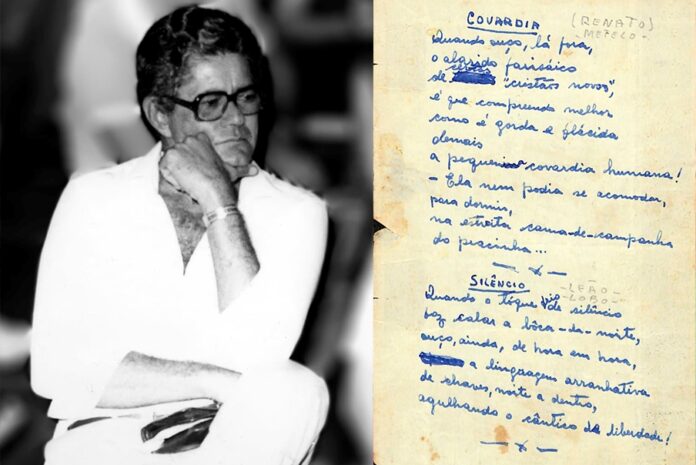 COVARDIA (RENATO)
Quando ouço, lá fora,
o alarido farisáico
de certos "cristãos novos",
é que compreendo melhor
como é gorda e flácida
demais
a pequenina covardia humana!
- Ela nem podia se acomodar,
para dormir,
na estreita cama-de-campanha
do pracinha...
SILÊNCIO - LEÃO -
LOBO -
Quando o tóque de silêncio
faz calar a bôca-da-noite,
ouço, ainda, de hora em hora,
a linguagem arranhativa
de chaves, noite a dentro,
agulhando o cântico da liberdade!